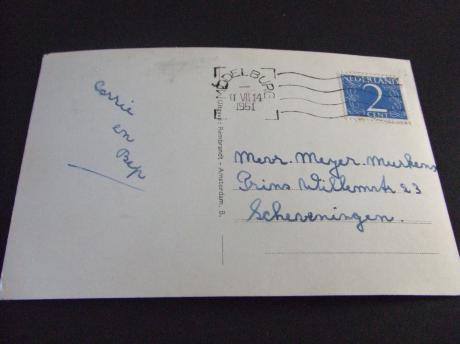 Corrie
en
Bep
MIDDELBURG
VII 14
1951
NEDERLAND
2
CENT
Uitgave: Rembrandt - Amsterdam. B.
Mevr. Meyer-Murkens
Prins Willemstr 23
Scheveningen.